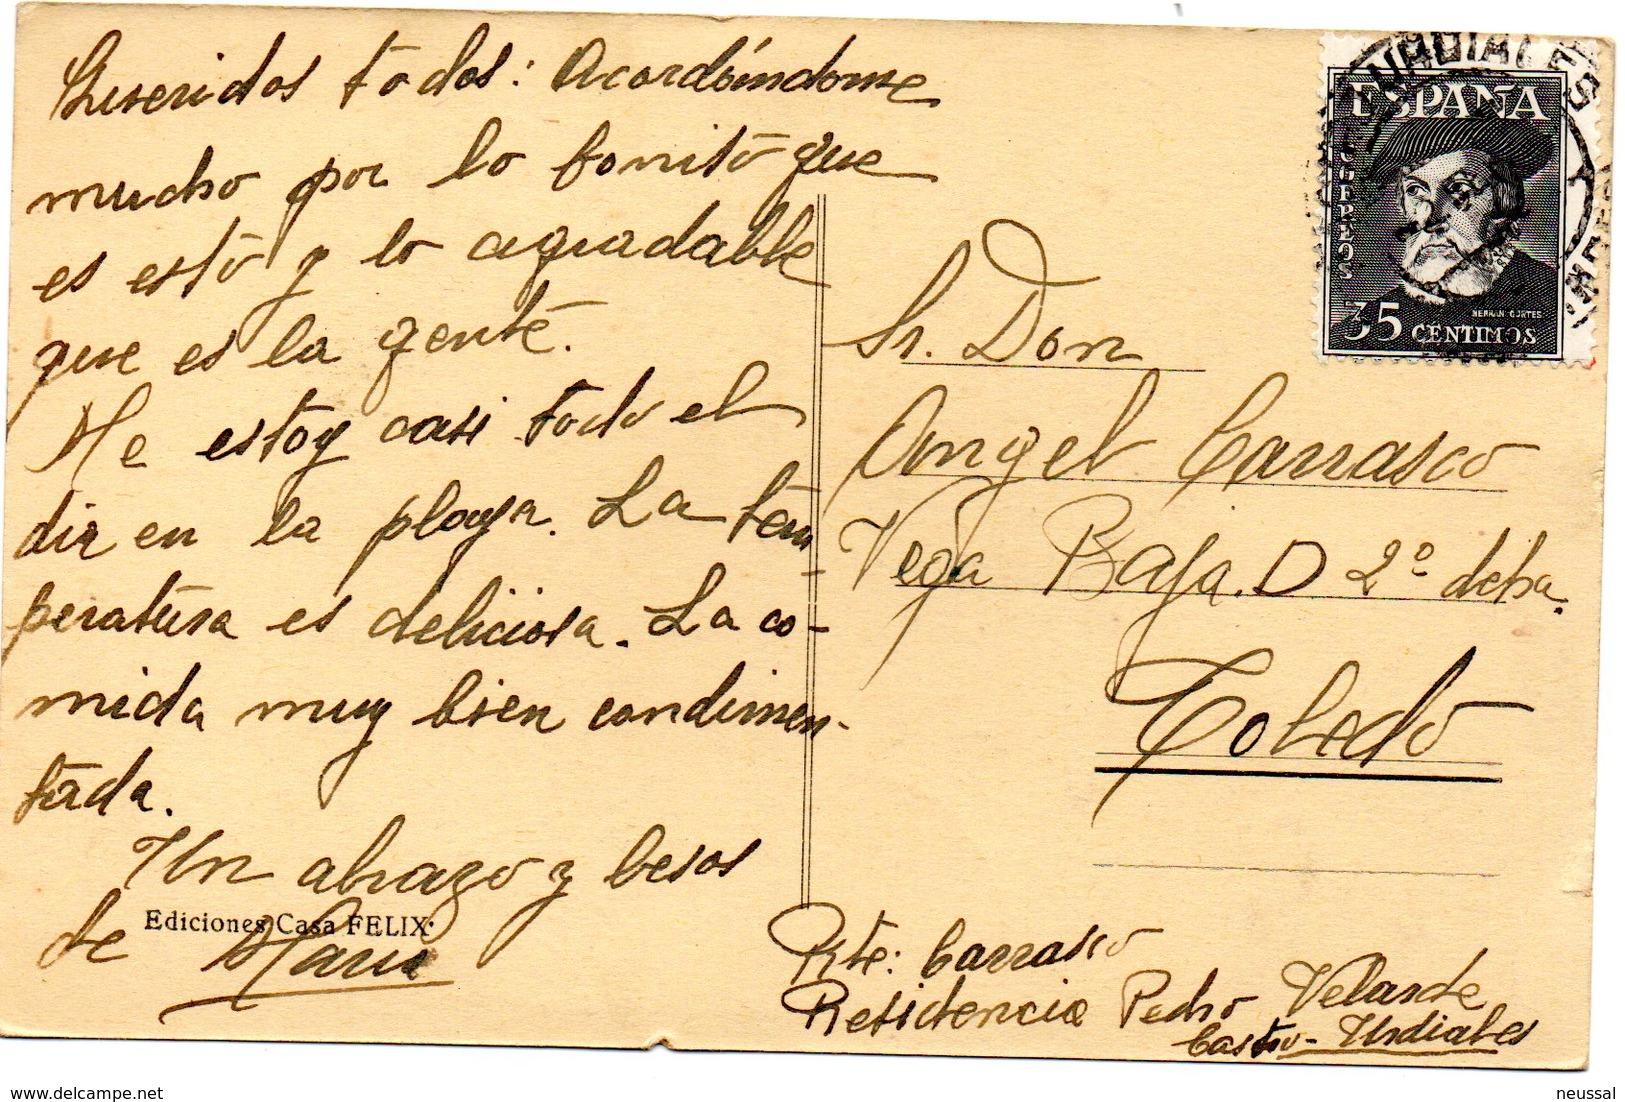 Queridos todos: Acordándome
mucho por lo bonito que
es esto y lo agradable
que es la gente.
Me estoy casi todo el
dia en la playa. La tem-
peratura es deliciosa. La co-
mida muy bien condimen-
tada.
Un abrazo y besos
de Mari
Ediciones Casa FELIX.
ESPAÑA
CORREOS
35 CÉNTIMOS
HERNAN CORTES
URDIALES
Sr. Don
Angel Carrasco
Vega Baja. D 2º dcha.
Toledo
Rte: Carrasco
Residencia Pedro Velarde
Castro-Urdiales
neussal